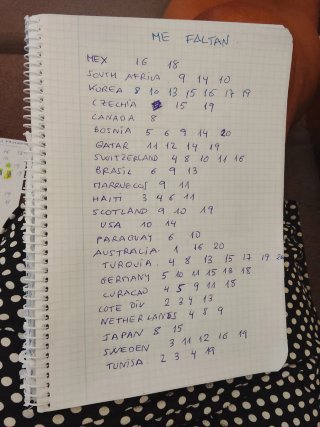 ME FALTAN
MEX 16 18
SOUTH AFRICA 9 14 10
KOREA 8 10 13 15 16 17 19
CZECHIA 15 19
CANADA 8
BOSNIA 5 6 9 14 20
QATAR 11 12 14 19
SWITZERLAND 4 8 10 11 16
BRASIL 6 9 13
MARRUECOS 9 11
HAITI 3 4 6 11
SCOTLAND 9 10 19
USA 10 14
PARAGUAY 6 10
AUSTRALIA 1 16 20
TURQUIA 4 8 13 15 17 19 20
GERMANY 5 10 11 15 13 18
CURACAO 4 5 9 11 18
COTE DIV 2 3 4 13
NETHERLANDS 4 8 9
JAPAN 8 15
SWEDEN 3 11 12 16 19
TUNISA 2 3 4 19